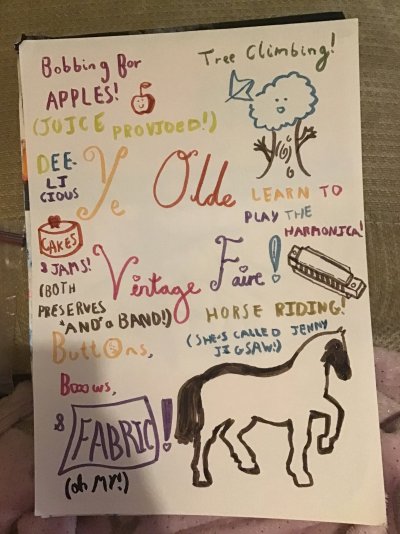 Bobbing for
APPLES!
(JUICE PROVIDED!)
Tree Climbing!
Ye Olde
Vintage Faire!
DEE-
LI
CIOUS
CAKES
& JAMS!
(BOTH
PRESERVES
*AND* a BAND!)
LEARN TO
PLAY THE
HARMONICA!
HORSE RIDING!
(SHE'S CALLED JENNY
JIGSAW!)
Buttons,
Booows,
&
FABRIC!
(oh MY!)